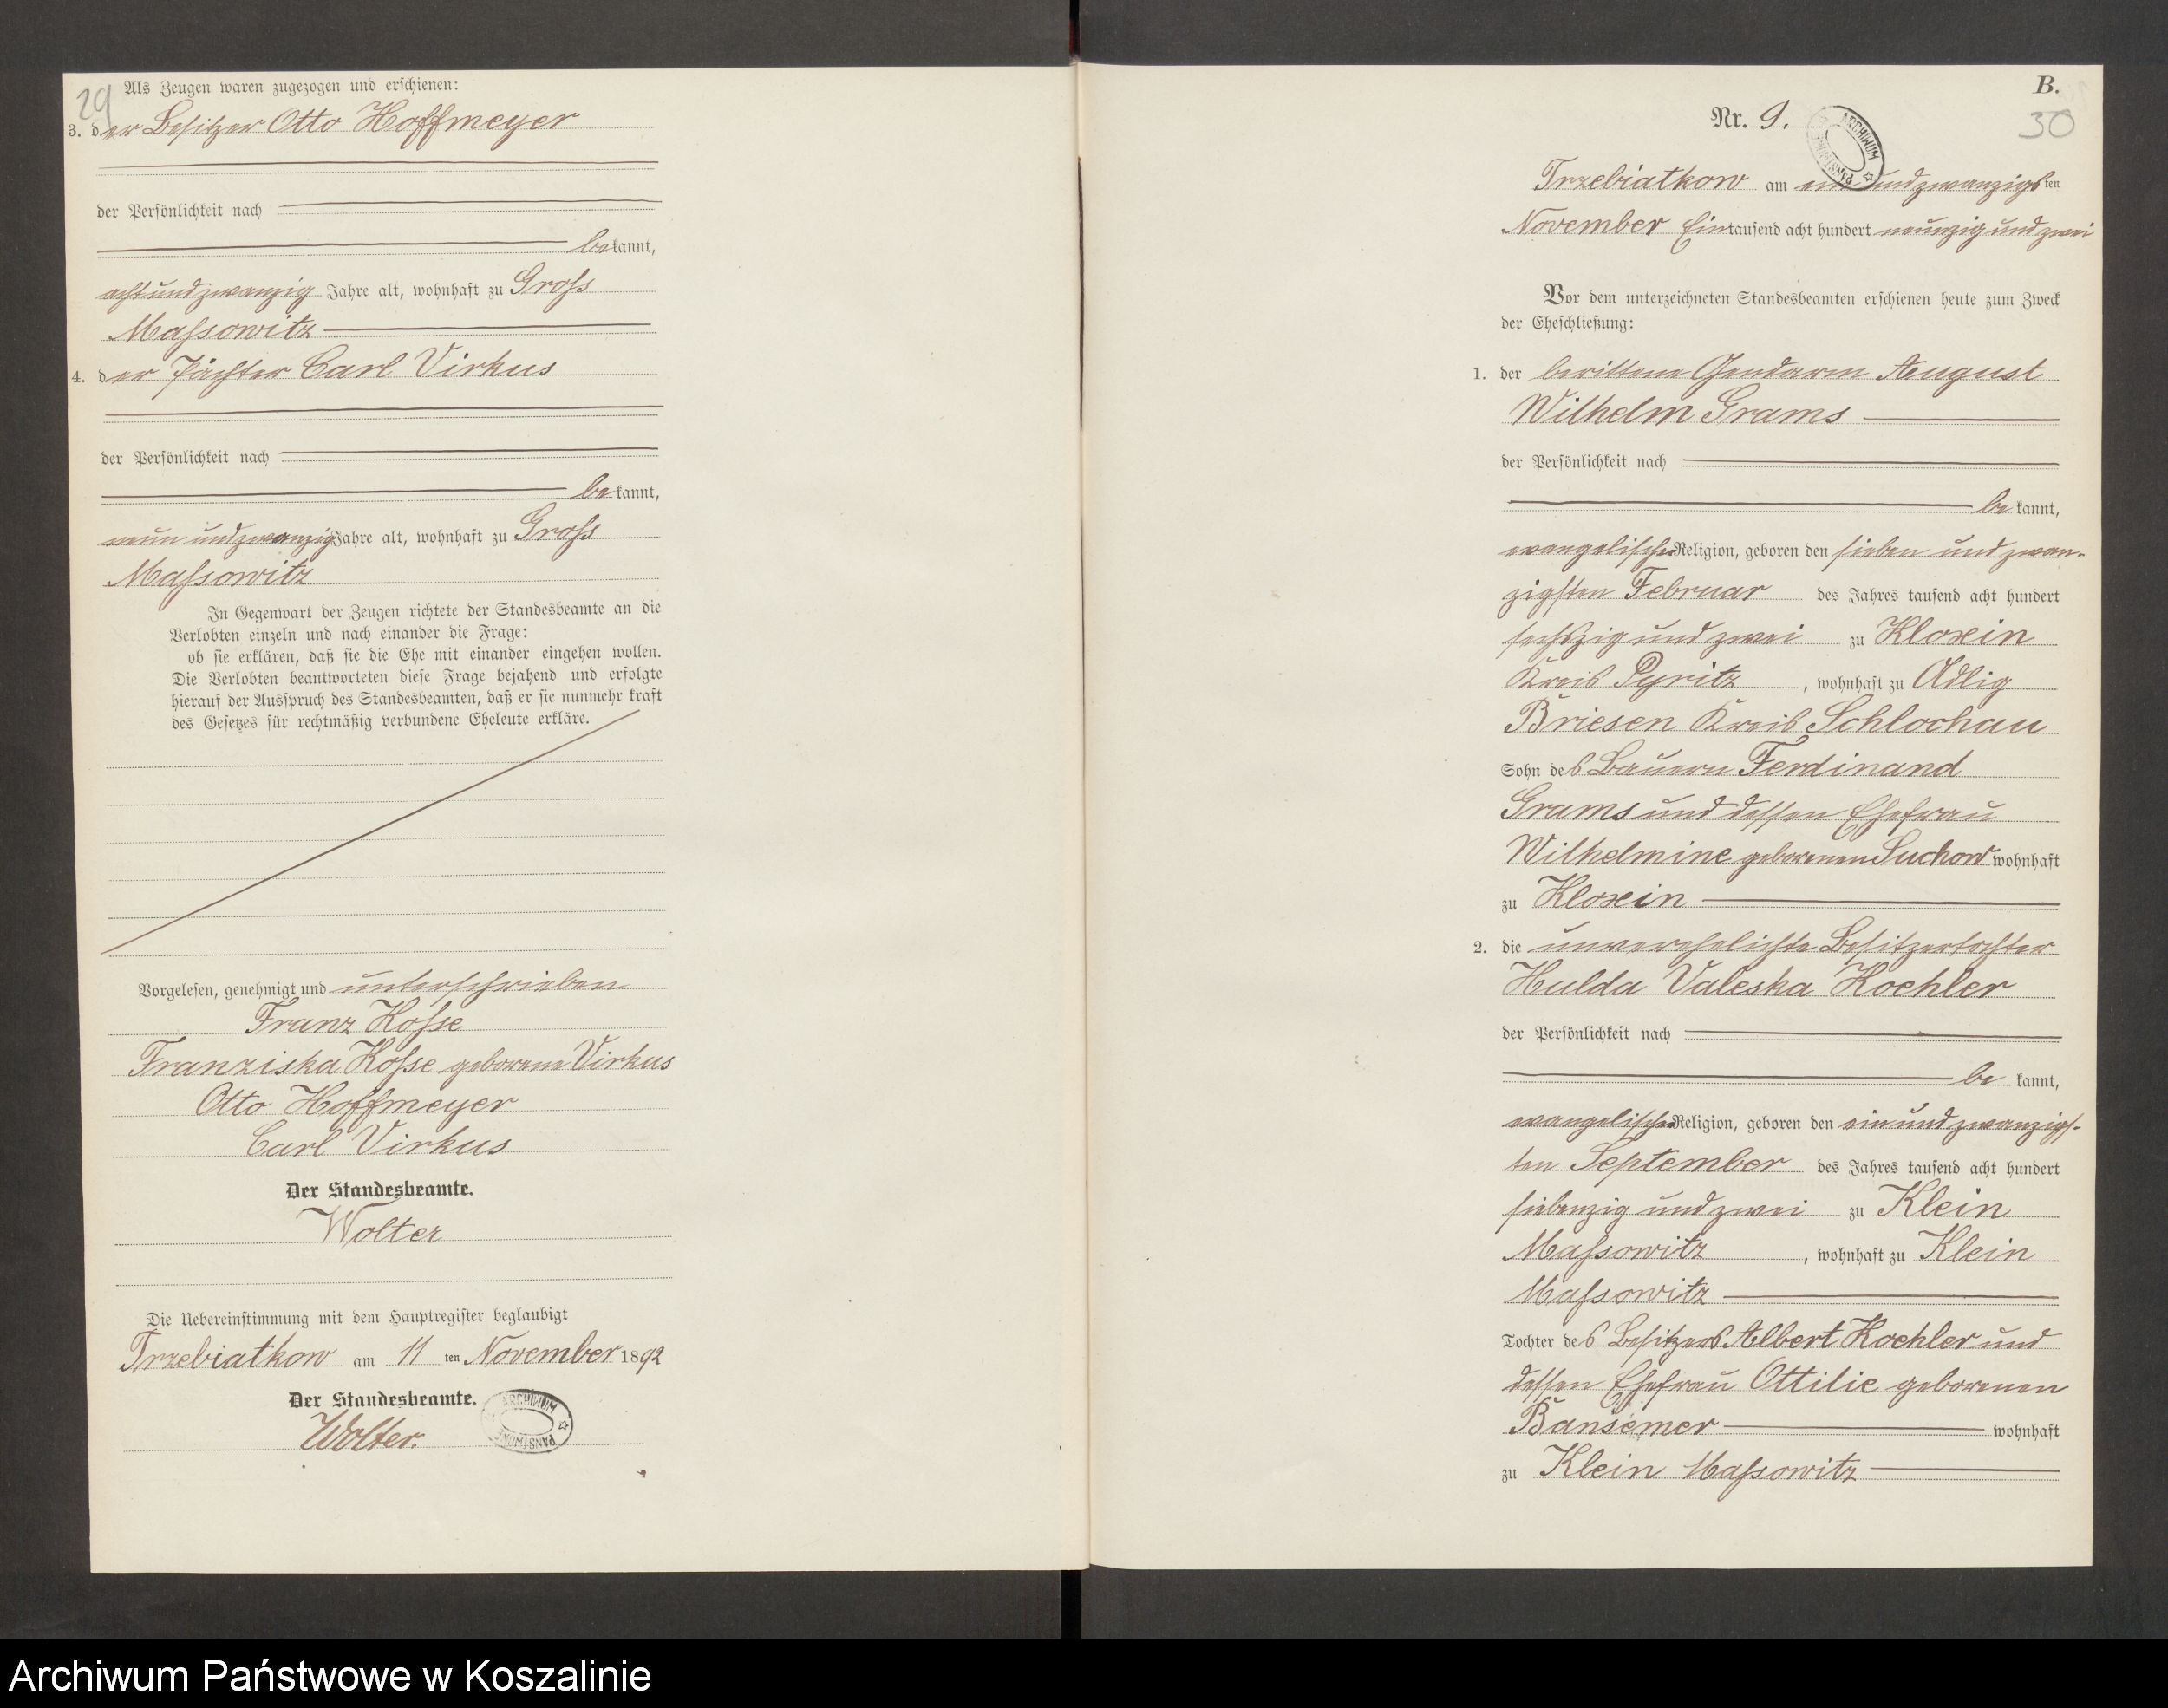 29
Als Zeugen waren zugezogen und erschienen:
3. der Besitzer Otto Hoffmeyer
der Persönlichkeit nach
bekannt,
achtundzwanzig Jahre alt, wohnhaft zu Groß
Maßowitz
4. der Pächter Carl Virkus
der Persönlichkeit nach
bekannt,
neun und zwanzig Jahre alt, wohnhaft zu Groß
Maßowitz
In Gegenwart der Zeugen richtete der Standesbeamte an die
Verlobten einzeln und nach einander die Frage:
ob sie erklären, daß sie die Ehe mit einander eingehen wollen.
Die Verlobten beantworteten diese Frage bejahend und erfolgte
hierauf der Ausspruch des Standesbeamten, daß er sie nunmehr kraft
des Gesetzes für rechtmäßig verbundene Eheleute erkläre.
Vorgelesen, genehmigt und unterschrieben
Franz Kosse
Franziska Kosse geborene Virkus
Otto Hoffmeyer
Carl Virkus
Der Standesbeamte.
Wolter
Die Uebereinstimmung mit dem Hauptregister beglaubigt
Trzebiatkow am 11 ten November 1892
Der Standesbeamte.
Wolter.
ARCHIWUM PAŃSTWOWE
B.
30
Nr. 9.
ARCHIWUM PAŃSTWOWE
Trzebiatkow am ein und zwanzigsten
November Eintausend acht hundert neunzig und zwei
Vor dem unterzeichneten Standesbeamten erschienen heute zum Zweck
der Eheschließung:
1. der berittene Gendarm August
Wilhelm Grams
der Persönlichkeit nach
be kannt,
evangelischer Religion, geboren den sieben und zwan-
zigsten Februar des Jahres tausend acht hundert
sechszig und zwei zu Kloxin
Kreis Pyritz, wohnhaft zu Adlig
Briesen Kreis Schlochau
Sohn des Bauern Ferdinand
Grams und dessen Ehefrau
Wilhelmine geborenen Suckow wohnhaft
zu Kloxin
2. die unverehelichte Besitzertochter
Hulda Valeska Koehler
der Persönlichkeit nach
be kannt,
evangelischer Religion, geboren den ein und zwanzigs-
ten September des Jahres tausend acht hundert
siebenzig und zwei zu Klein
Maßowitz, wohnhaft zu Klein
Maßowitz
Tochter des Besitzers Albert Koehler und
dessen Ehefrau Ottilie geborenen
Bansemer wohnhaft
zu Klein Maßowitz
Archiwum Państwowe w Koszalinie